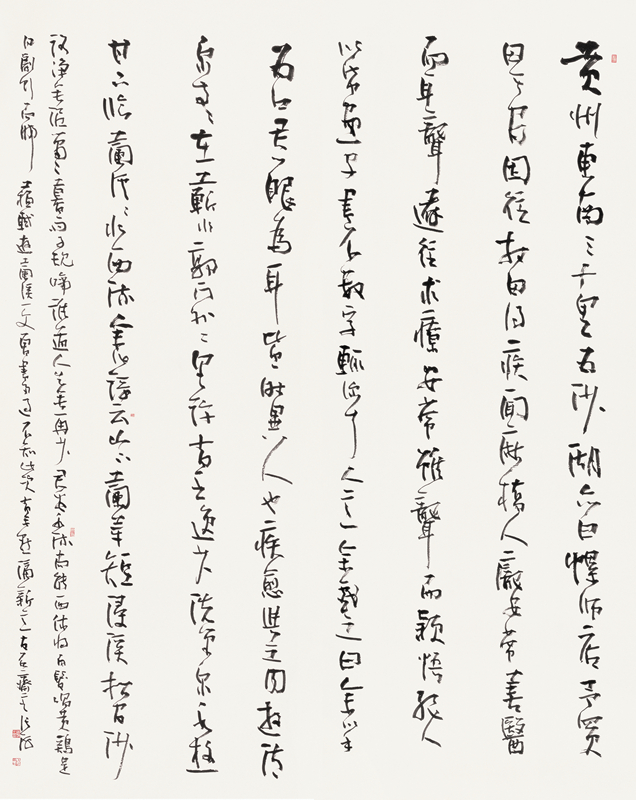 黄州東南三十里为沙湖亦曰螺师店予買
田其间因往相田得疾聞麻橋人龐安常善醫
而耳聾遂往求療安常雖聾而颖悟绝人
以紙畫字書不數字輒深了人意余戲之曰余以手
为口君以眼为耳皆一时異人也疾愈與之同遊清
泉寺寺在蘄水郭门外二里許有王逸少洗筆泉水極
甘下临蘭溪溪水西流余作歌云山下蘭芽短浸溪松间沙
路净无泥蕭蕭暮雨子規啼誰道人生无再少君看流水尚能西休将白髮唱黄鷄是
日劇飲而歸 蘇軾遊蘭溪一文曾書